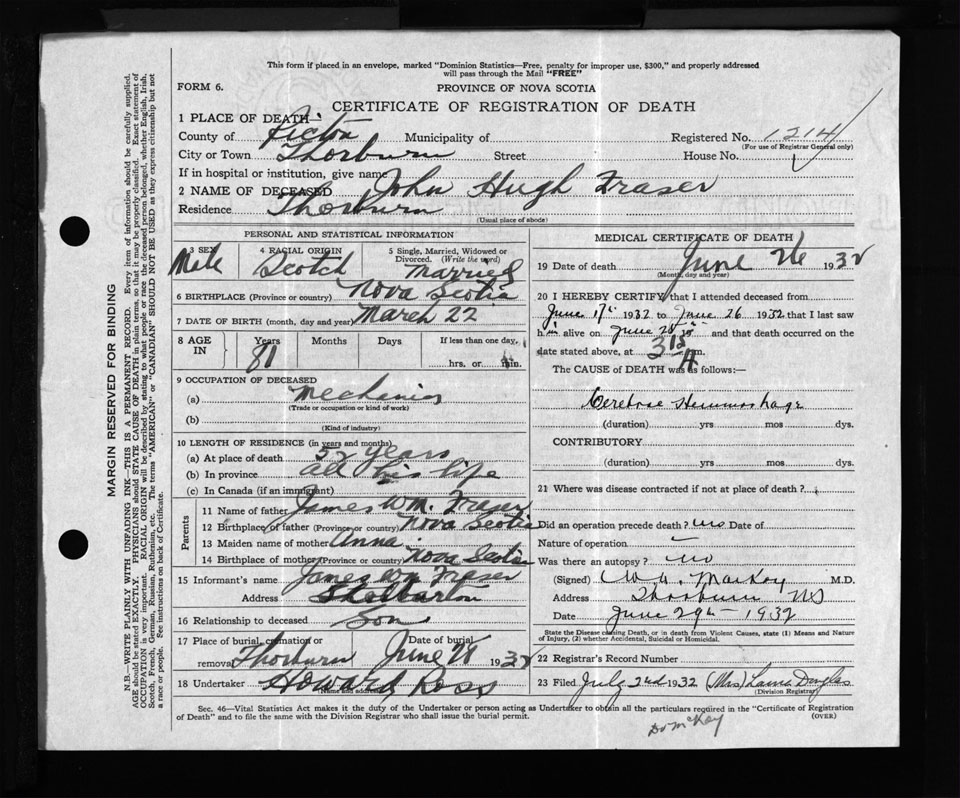 This form if placed in an envelope, marked "Dominion Statistics—Free, penalty for improper use, $300," and properly addressed
will pass through the Mail "FREE"
FORM 6.
PROVINCE OF NOVA SCOTIA
CERTIFICATE OF REGISTRATION OF DEATH
1 PLACE OF DEATH—
County of Pictou Municipality of Registered No. 1214
(For use of Registrar General only)
City or Town Thorburn Street House No.
If in hospital or institution, give name
2 NAME OF DECEASED John Hugh Fraser
Residence Thorburn
(Usual place of abode)
PERSONAL AND STATISTICAL INFORMATION
3 SEX 4 RACIAL ORIGIN 5 Single, Married, Widowed or
Divorced. (Write the word)
Male Scotch Married
6 BIRTHPLACE (Province or country) Nova Scotia
7 DATE OF BIRTH (month, day and year) March 22
8 AGE IN Years Months Days If less than one day,
81 hrs. or min.
9 OCCUPATION OF DECEASED
(a) Mechanic
(Trade or occupation or kind of work)
(b)
(Kind of industry)
10 LENGTH OF RESIDENCE (in years and months)
(a) At place of death 52 years
(b) In province all his life
(c) In Canada (if an immigrant)
Parents
11 Name of father James Wm. Fraser
12 Birthplace of father (Province or country) Nova Scotia
13 Maiden name of mother Anna
14 Birthplace of mother (Province or country) Nova Scotia
15 Informant's name James Wm Fraser
Address
16 Relationship to deceased Son
17 Place of burial, cremation or Date of burial
removal Thorburn June 28 1932
18 Undertaker Howard Ross
(Name and address)
MEDICAL CERTIFICATE OF DEATH
19 Date of death June 26 1932
(Month, day and year)
20 I HEREBY CERTIFY that I attended deceased from
June 17th 1932 to June 26 1932 that I last saw
him alive on June 25th and that death occurred on
date stated above, at 3 15 A m.
The CAUSE of DEATH was as follows:—
Cerebral Hemmorhage
(duration) yrs mos dys.
CONTRIBUTORY
(duration) yrs mos dys.
21 Where was disease contracted if not at place of death?
Did an operation precede death? no Date of
Nature of operation —
Was there an autopsy? no
(Signed) W. A. MacKay M.D.
Address Thorburn NS
Date June 29th 1932
State the Disease causing Death, or in death from Violent Causes, state (1) Means and Nature
of Injury, (2) whether Accidental, Suicidal or Homicidal.
22 Registrar's Record Number
23 Filed July 2nd 1932 (Mrs) Laura Douglas
(Division Registrar)
Sec. 46—Vital Statistics Act makes it the duty of the Undertaker or person acting as Undertaker to obtain all the particulars required in the "Certificate of Registration
of Death" and to file the same with the Division Registrar who shall issue the burial permit.
(OVER)
Dr McKay
MARGIN RESERVED FOR BINDING
N.B.—WRITE PLAINLY WITH UNFADING INK—THIS IS A PERMANENT RECORD. Every item of information should be carefully supplied.
AGE should be stated EXACTLY. PHYSICIANS should STATE CAUSE OF DEATH in plain terms, so that it may be properly classified. Exact statement of
OCCUPATION is very important. RACIAL ORIGIN will be described by stating to what people or race the deceased person belonged, whether English, Irish,
Scotch, French, German, Russian, Ruthenian, etc. The terms "AMERICAN" or "CANADIAN" SHOULD NOT BE USED as they express citizenship but not
a race or people. See instructions on back of Certificate.